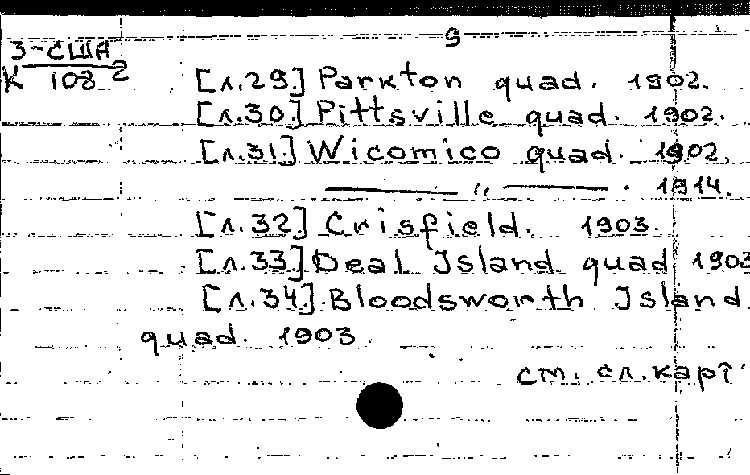 9
3-США
К 108 2
[л.29] Parkton quad. 1902.
[л.30] Pittsville quad. 1902.
[л.31] Wicomico quad. 1902.
—— " —— . 1914.
[л.32] Crisfield. 1903.
[л.33] Deal Island quad 1903
[л.34] Bloodsworth Island
quad. 1903.
см. сл. карт